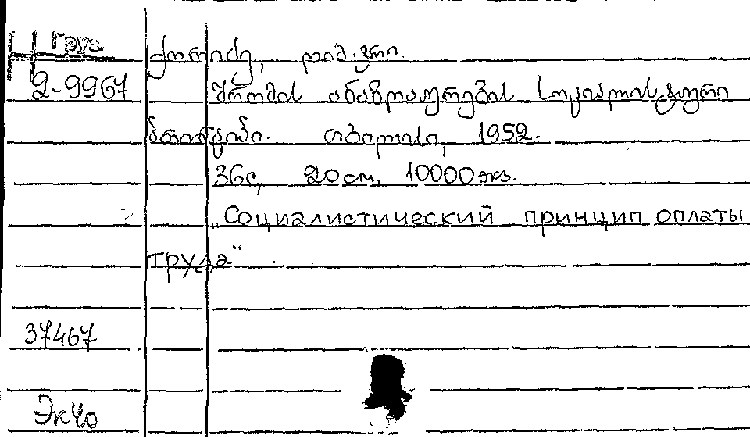 Груз
2-9967
ქორიძე, დიმიტრი.
შრომის ანაზღაურების სოციალისტური
პრინციპი. თბილისი, 1952.
36с, 20 см, 10000 экз.
„Социалистический принцип оплаты
труда“
37467
Эк40